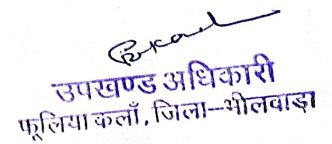 उपखण्ड अधिकारी
फूलिया कलाँ, जिला-भीलवाड़ा